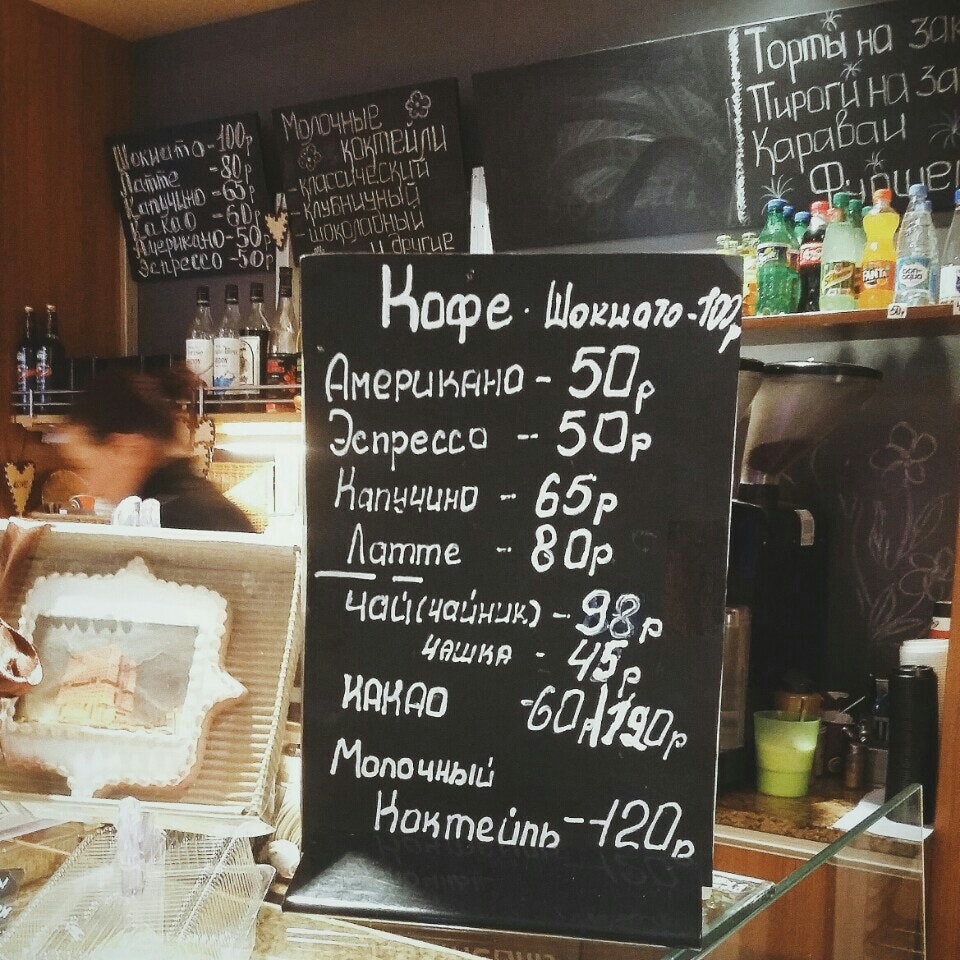 Шокиато-100р
Латте - 80р
Капучино - 65р
Какао - 60р
Американо-50р
Эспрессо -50р
Молочные
коктейли
-классический
-клубничный
-шоколадный
и другие
Торты на зак
Пироги на за
Караваи
Фуршет
Кофе · Шокиато-100р
Американо - 50р
Эспрессо -- 50р
Капучино - 65р
Латте -- 80р
Чай(чайник) - 98р
чашка - 45р
КАКАО -60р/120р
Молочный
Коктейль--120р
FANTA
50р